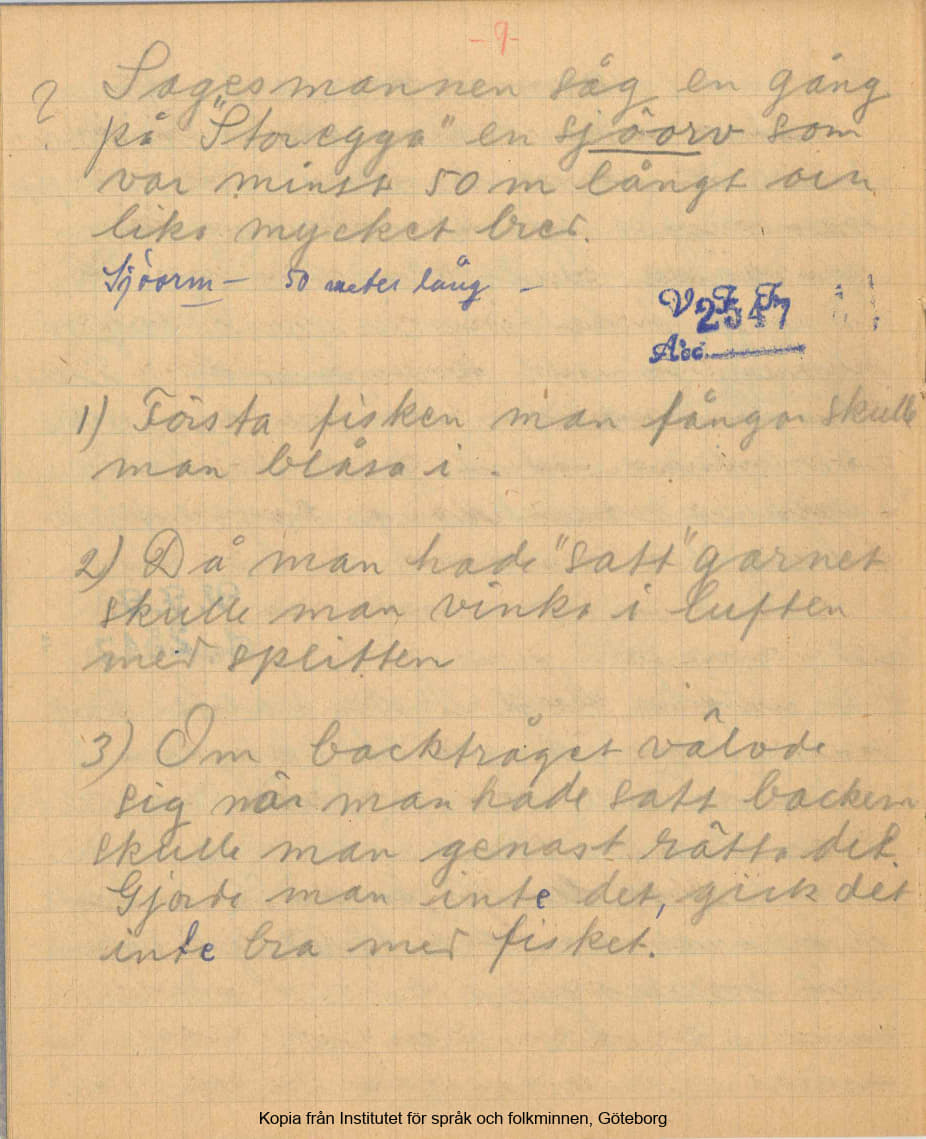 - 9 -
? Sagesmannen såg en gång
på "Storegga" en sjöorv som
var minst 50 m långt och
lika mycket bred.
Sjöorm - 50 meter lång -
V. F. F.
2547
Acc.
1) Första fisken man fångar skulle
man blåsa i.
2) Då man hade "satt" garnet
skulle man vinka i luften
med splitten
3) Om backtråget välvde
sig när man hade satt backern
skulle man genast rätta det.
Gjorde man inte det, gick det
inte bra med fisket.
Kopia från Institutet för språk och folkminnen, Göteborg